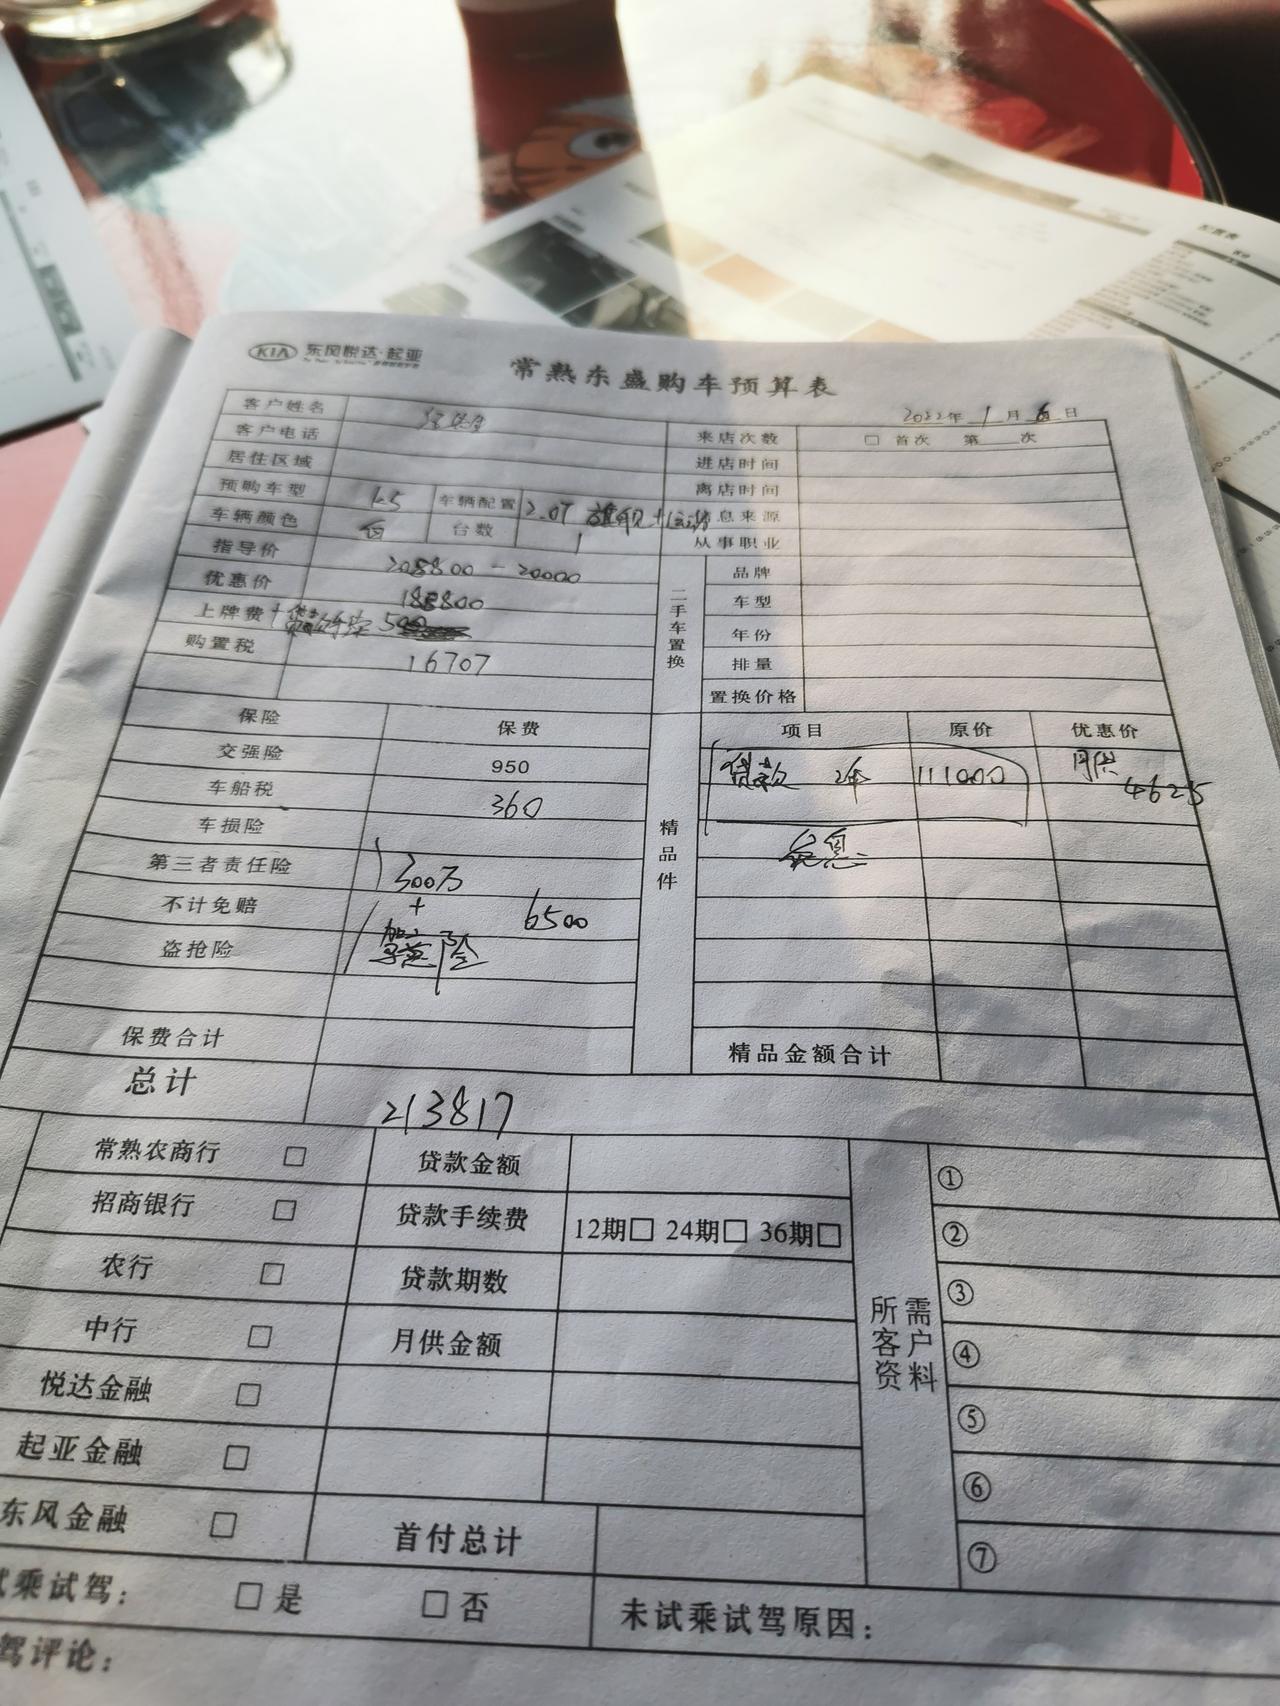 KIA 东风悦达·起亚
常熟东盛购车预算表
2022年 1月 6日
客户姓名
客户电话
来店次数 □ 首次 第 次
居住区域
进店时间
预购车型 k5 车辆配置 2.0T 旗舰
离店时间
车辆颜色 白 台数 1
信息来源
指导价 205800 - 20000
从事职业
优惠价 185800
二手车置换
品牌
上牌费 + 500
车型
购置税 16707
年份
排量
置换价格
保险 保费
精品件
项目 原价 优惠价
交强险 950
贷款 2年 111000 月供 4625
车船税 360
车损险
免息
第三者责任险 300万
不计免赔 + 6500
盗抢险 驾意险
保费合计
精品金额合计
总计 213817
常熟农商行 □ 贷款金额
招商银行 □ 贷款手续费 12期□ 24期□ 36期□
农行 □ 贷款期数
中行 □ 月供金额
悦达金融 □
起亚金融 □
东风金融 □ 首付总计
所需客户资料
①
②
③
④
⑤
⑥
⑦
试乘试驾: □ 是 □ 否 未试乘试驾原因:
驾评论: